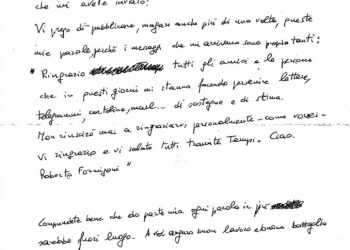 che mi avete inviato!
Vi prego di pubblicare, magari anche più di una volta, queste
mie parole, perché i messaggi che mi arrivano sono proprio tanti:
"Ringrazio tutti gli amici e le persone
che in questi giorni mi stanno facendo pervenire lettere,
telegrammi, cartoline, mail... di sostegno e di stima.
Non riuscirò mai a ringraziarvi personalmente - come vorrei -.
Vi ringrazio e vi saluto tutti tramite Tempi. Ciao.
Roberto Formigoni"
Comprendete bene che da parte mia ogni parola in più
sarebbe fuori luogo. A voi auguro buon lavoro e buona battaglia